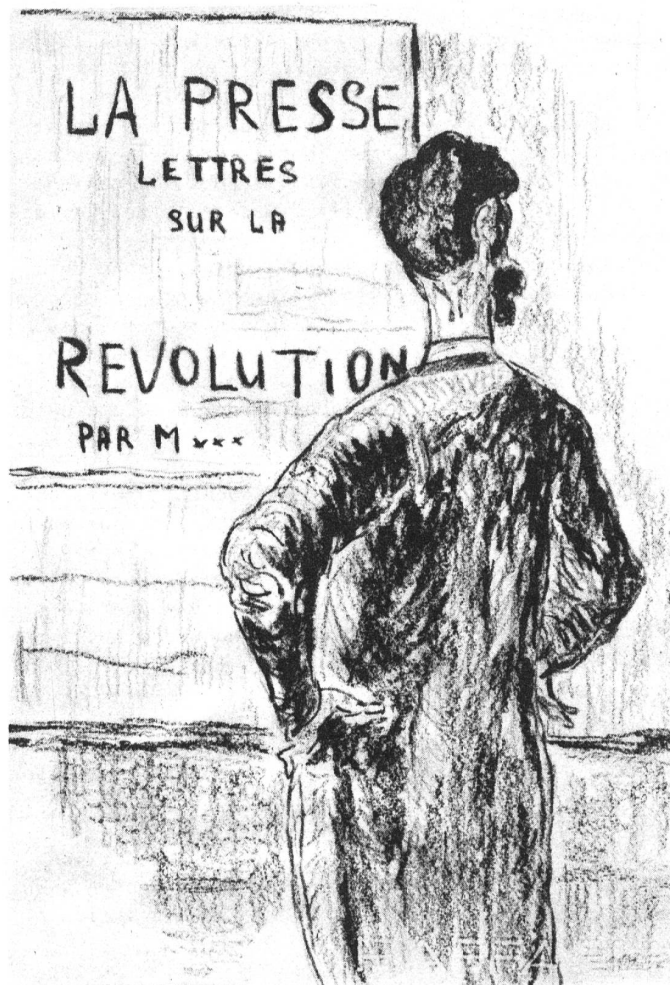 LA PRESSE
LETTRES
SUR LA
REVOLUTION
PAR M xxx